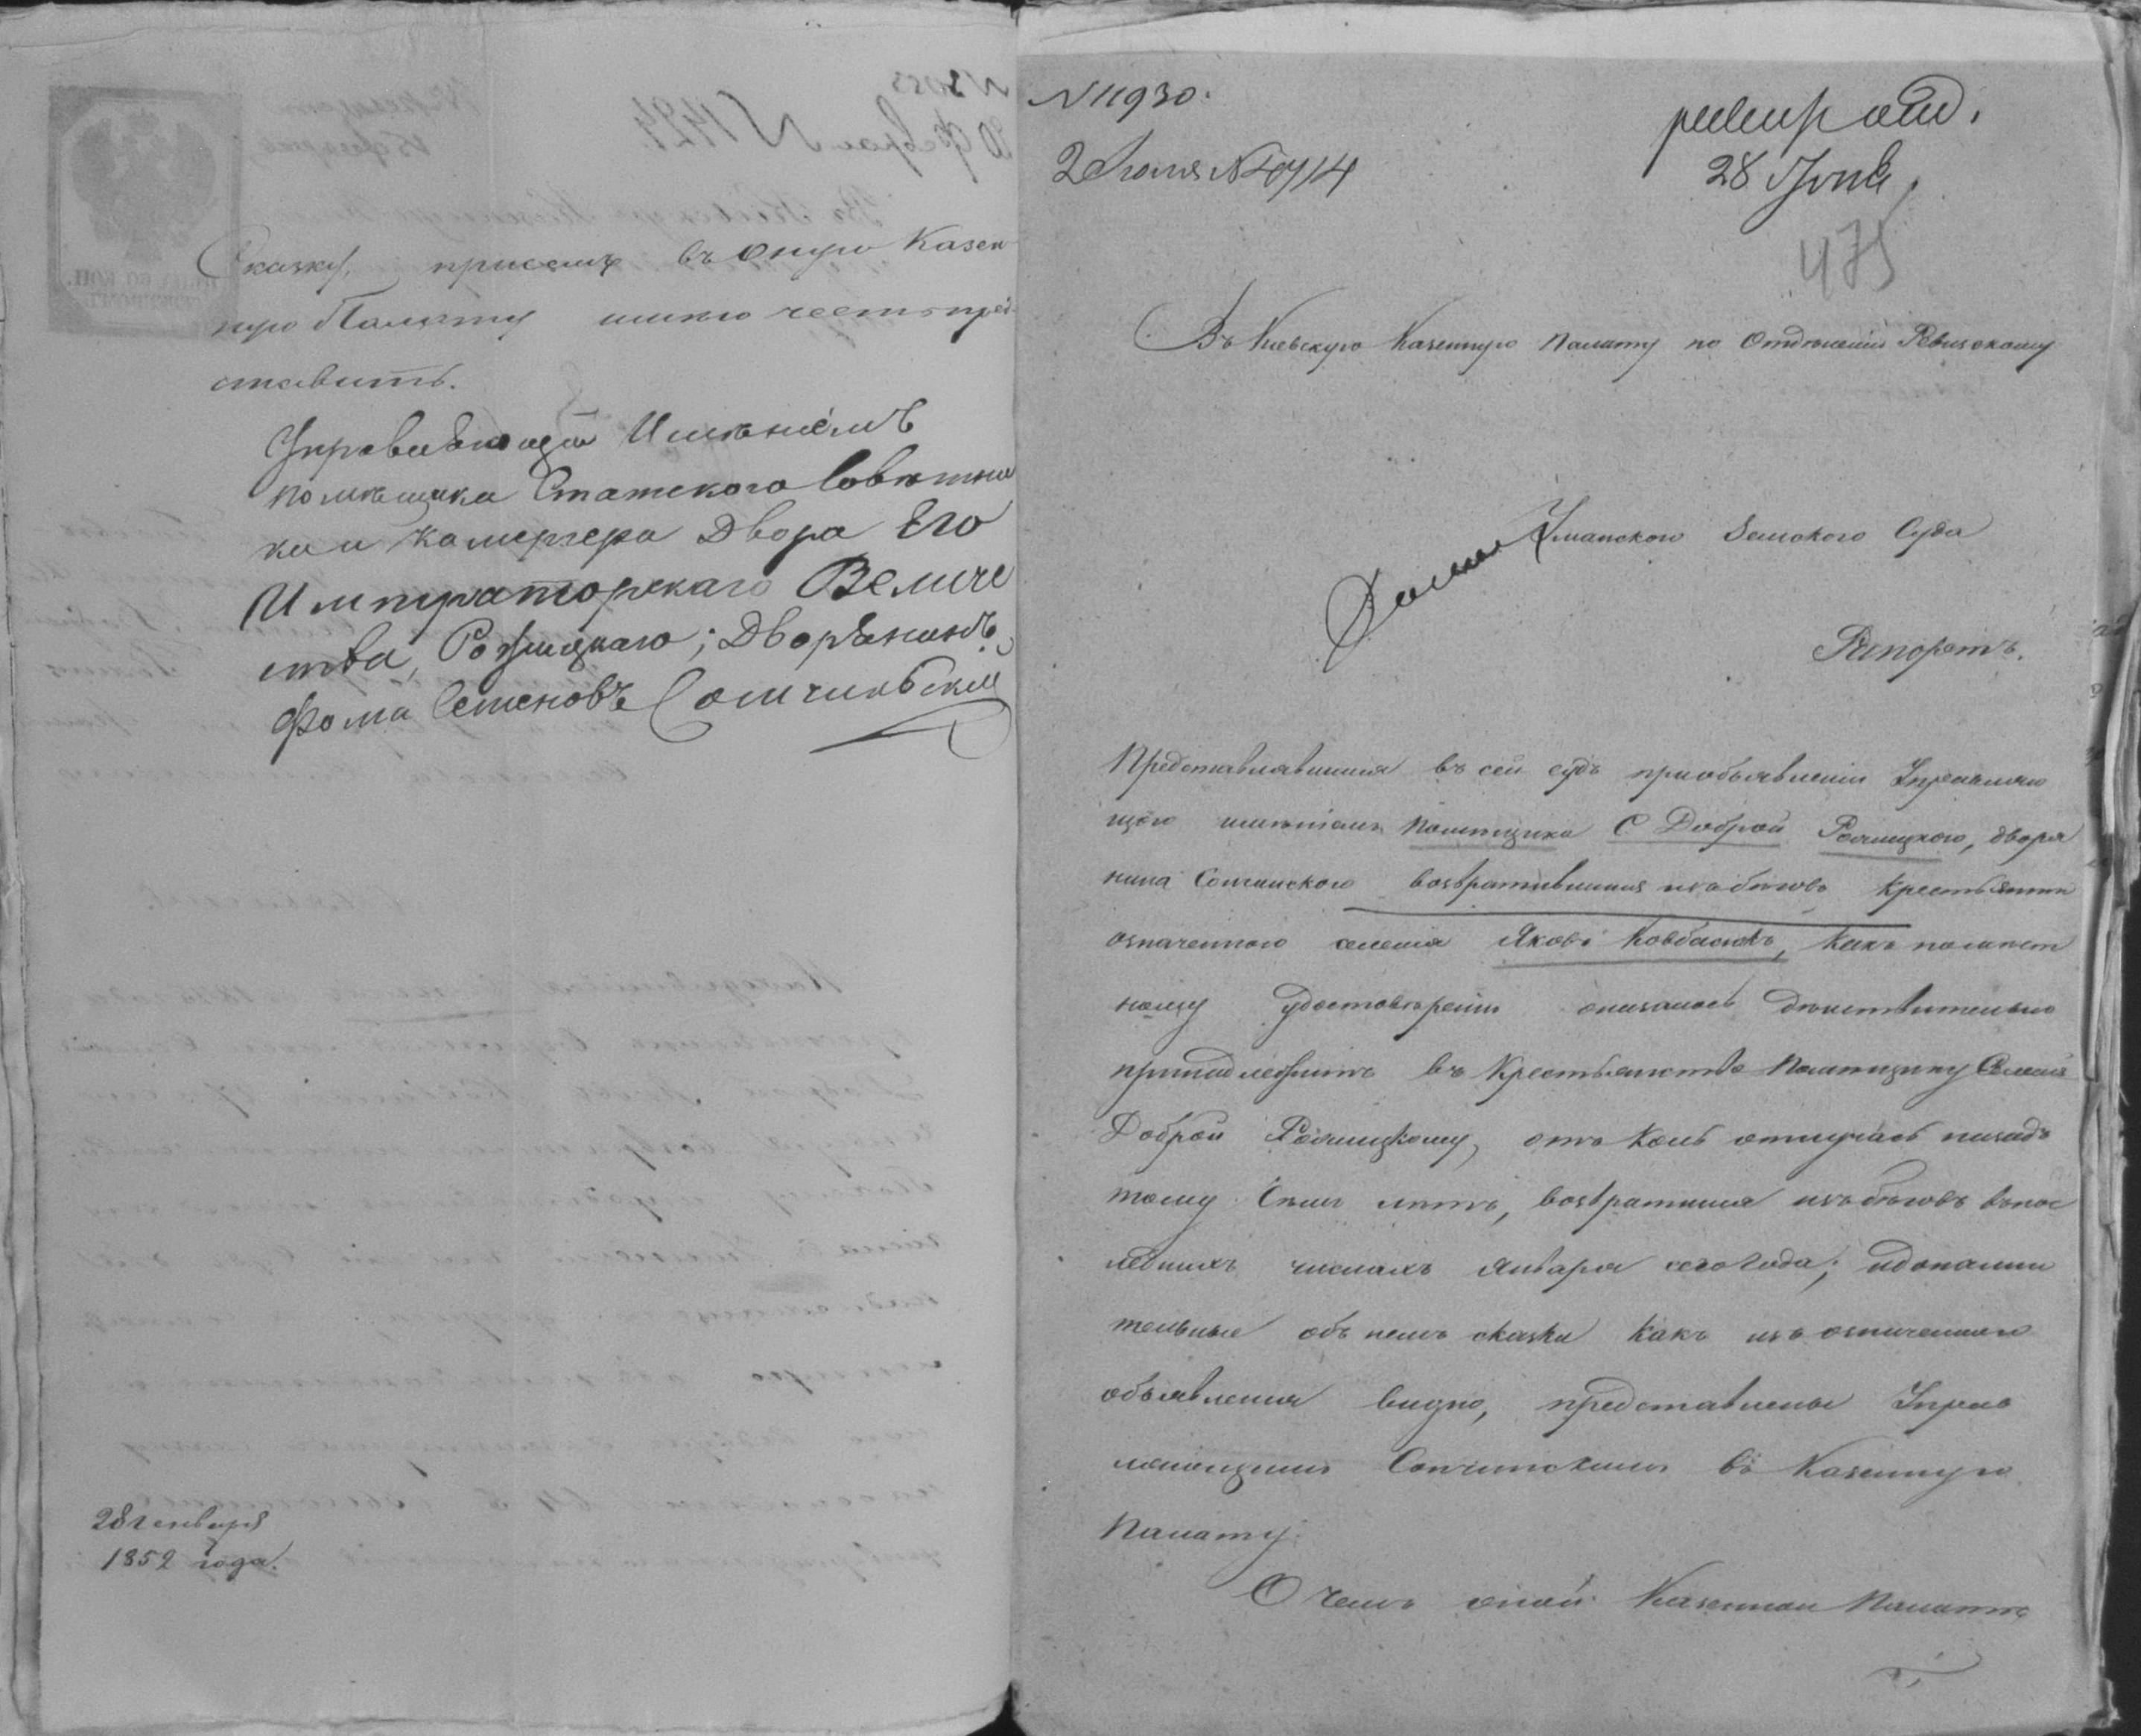 Сказку, присемъ въ оную Казен
ную Палату имѣю честь пред
ставить.
Управляющій Имѣніемъ
помѣщика Статского Совѣтни
ка и камергера Двора Его
Императорскаго Величе
ства, Ржищкаго; Дворянинъ
Фома Семеновъ
28 января
1852 года.
N 11930.
2 Июля N
ревиз отд.
28 Июня
475
Въ Киевскую Казенную Палату по Отдѣленію Ревизскому
Уманского Земского Суда
Рапортъ.
Представлявшийся въ сей судъ при объявленіи Управляю
щего имѣніемъ помѣщика С Доброй дворя
нина Сомчинского возвратившийся изъ бѣговъ крестьянинъ
означенного селенія Яковъ Ковбасюкъ, какъ по мѣст
ному удостовѣренію оказалось дѣйствительно
принадлежитъ въ крестьянствѣ помѣщику
Доброй отъ коль отлучась назадъ
тому лѣтъ, возвратился изъ бѣговъ въ пос
леднихъ числахъ Января сего года; и дополни
тельные объ немъ сказки какъ изъ означенного
объявленія видно, представлены Управ
ляющимъ Сомчинскимъ въ Казенную
Палату.
О чемъ оной Казенной Палатѣ